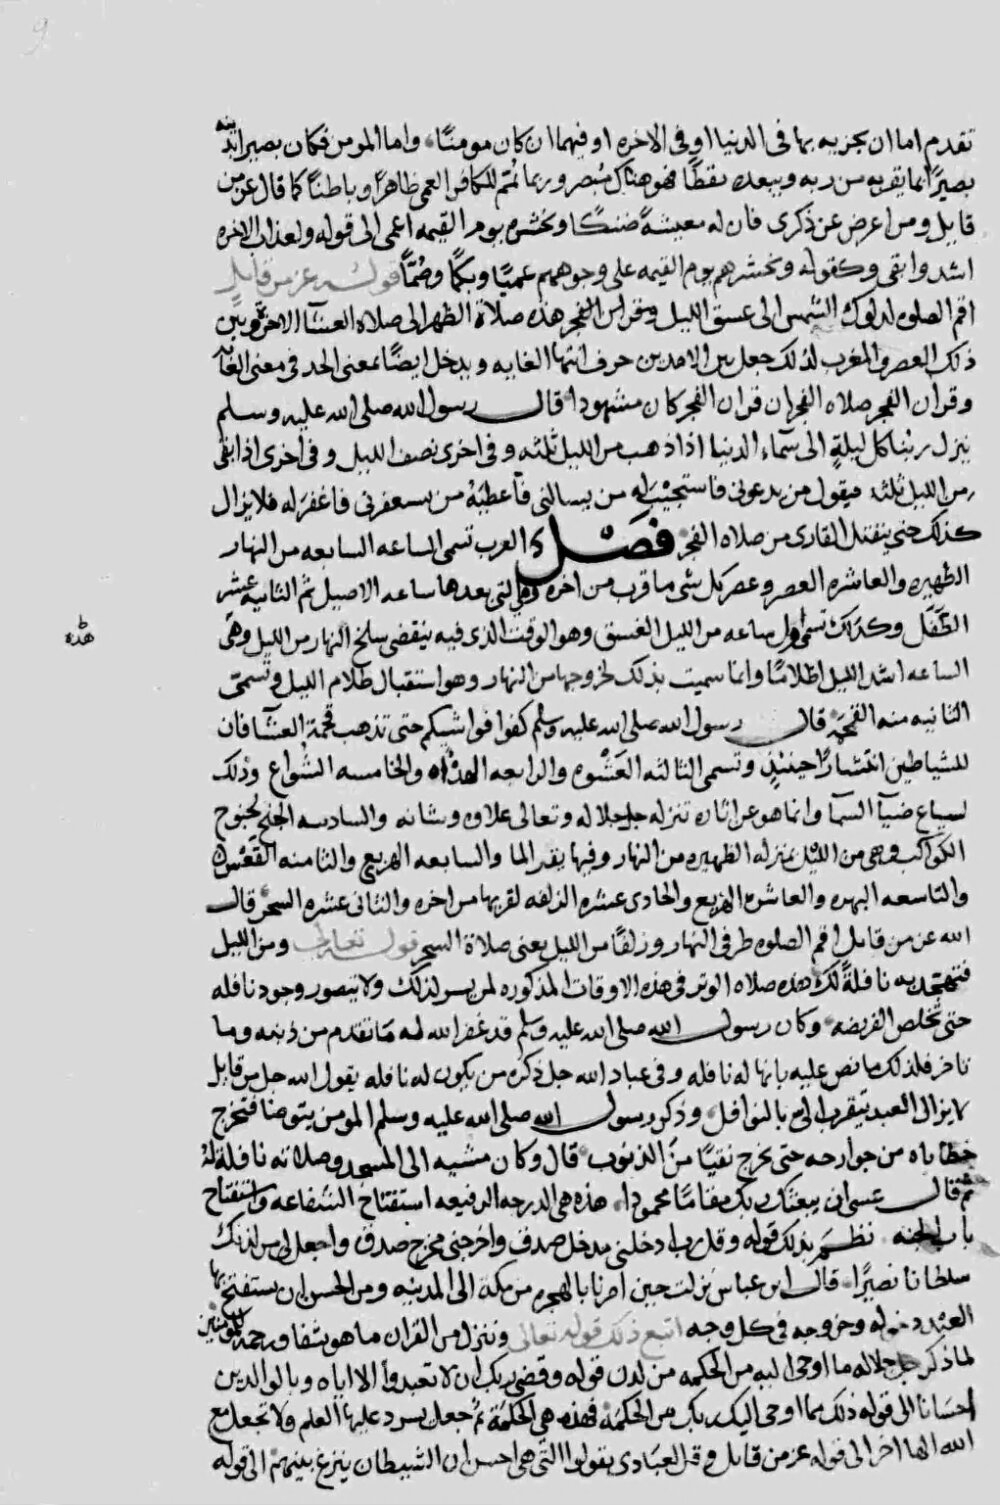 تقدم اما ان يجزيه بها فى الدنيا او فى الاخره او فيهما ان كان مومنًا واما المومن فكان بصيرا بدينه
بصيرًا بما يقربه من ربه ويبعده فهو هناك مبصر وربما تمم للكافر العمى ظاهرًا وباطنًا كما قال عز من
قايل ومن اعرض عن ذكرى فان له معيشةً ضنكًا ونحشره يوم القيمه اعمى الى قوله ولعذاب الاخره
اشد وابقى وكقوله ونحشرهم يوم القيمه على وجوههم عميًا وبكمًا وصُمًّا قوله عز من قايل
اقم الصلوه لدلوك الشمس الى غسق الليل وقران الفجر هذه صلاة الظهر الى صلاه العشآ الاخرة وبين
ذلك العصر والمغرب لذلك جعل بين الامدين حرف انتها الغايه ويدخل ايضًا بمعنى الحد فى معنى الغايه
وقران الفجر صلاه الفجر ان قران الفجر كان مشهودا قال رسول الله صلى الله عليه وسلم
ينزل ربنا كل ليلةٍ الى سمآء الدنيا اذا ذهب من الليل ثلثه وفى اخرى نصف الليل وفى اخرى اذا بقى
من الليل ثلثه فيقول من يدعونى فاستجيبَ له من يسالنى فاعطيَهُ من يستغفرنى فاغفرَ له فلا يزال
كذلك حتى ينفتل القارى من صلاه الفجر فصل العرب تسمى الساعه السابعه من النهار
الظهيره والعاشره العصر وعصر كل شى ما قرب من اخره والتى بعدها ساعه الاصيل ثم الثانيه عشر
الطَّفَل وكذلك تسمى اول ساعه من الليل الغسق وهو الوقت الذى فيه ينقضى سلخ النهار من الليل وهى
هذه
الساعه اشد الليل اظلامًا وانما سميت بذلك لخروجها من النهار وهو استقبال ظلام الليل وتسمى
الثانيه منه الفحمة قال رسول الله صلى الله عليه وسلم كفوا فواشيكم حتى تذهب فحمة العشآ فان
للشياطين انتشارًا حينيذٍ وتسمى الثالثه العَشْوه والرابعه الهدْاه والخامسه الشواع وذلك
لسياع ضيآ السمآ وانما هو عن اثاره تنزله جل جلاله وتعالى علاوه وشانه والسادسه الجنح لجنوح
الكواكب وهى من الليل بمنزله الظهيره من النهار وفيها يقد الما والسابعه الهزيع والثامنه
والتاسعه البهره والعاشره الهزيع والحادى عشره الزلفه لقربها من اخره والثانى عشره السحر قال
الله عز من قايل اقم الصلوه طرفى النهار وزلفًا من الليل يعنى صلاة السحر قوله تعالى ومن الليل
فتهجد به نافلةً لك هذه صلاه الوتر فى هذه الاوقات المذكوره لمن يسر لذلك ولا يتصور وجود نافله
حتى تخلص الفريضه وكان رسول الله صلى الله عليه وسلم قد غفر الله له ما تقدم من ذنبه وما
تاخر فلذلك ما نص عليه بانها له نافله وفى عباد الله جل ذكره من يكون له نافله يقول الله جل من قايل
لا يزال العبد يتقرب الى بالنوافل وذكر رسول الله صلى الله عليه وسلم المومن يتوضا فتخرج
خطاياه من جوارحه حتى يخرج نقيًا من الذنوب قال وكان مشيه الى المسجد وصلاته نافلة له
ثم قال عسى ان يبعثك ربك مقامًا محمودا هذه هى الدرجه الرفيعه استفتاح الشفاعه واستفتاح
باب الجنه نظم بذلك قوله وقل رب ادخلنى مدخل صدق واخرجنى مخرج صدق واجعل لى من لدنك
سلطانا نصيرًا قال ابن عباس نزلت حين امرنا بالهجره من مكة الى المدينه ومن الحسن ان يستفتح بها
العبد دخوله وخروجه فى كل وجه اتبع ذلك قوله تعالى وننزل من القران ما هو شفا ورحمة للمومنين
لما ذكر جل جلاله ما اوحى اليه من الحكمه من لدن قوله وقضى ربك ان لا تعبدوا الا اياه وبالوالدين
احسانا الى قوله ذلك مما اوحى اليك ربك من الحكمه فهذه هى الحكمة ثم جعل يسرد عليها العلم ولا تجعل مع
الله الها اخر الى قوله عز من قايل وقل لعبادى يقولوا التى هى احسن ان الشيطان ينزغ بينهم الى قوله